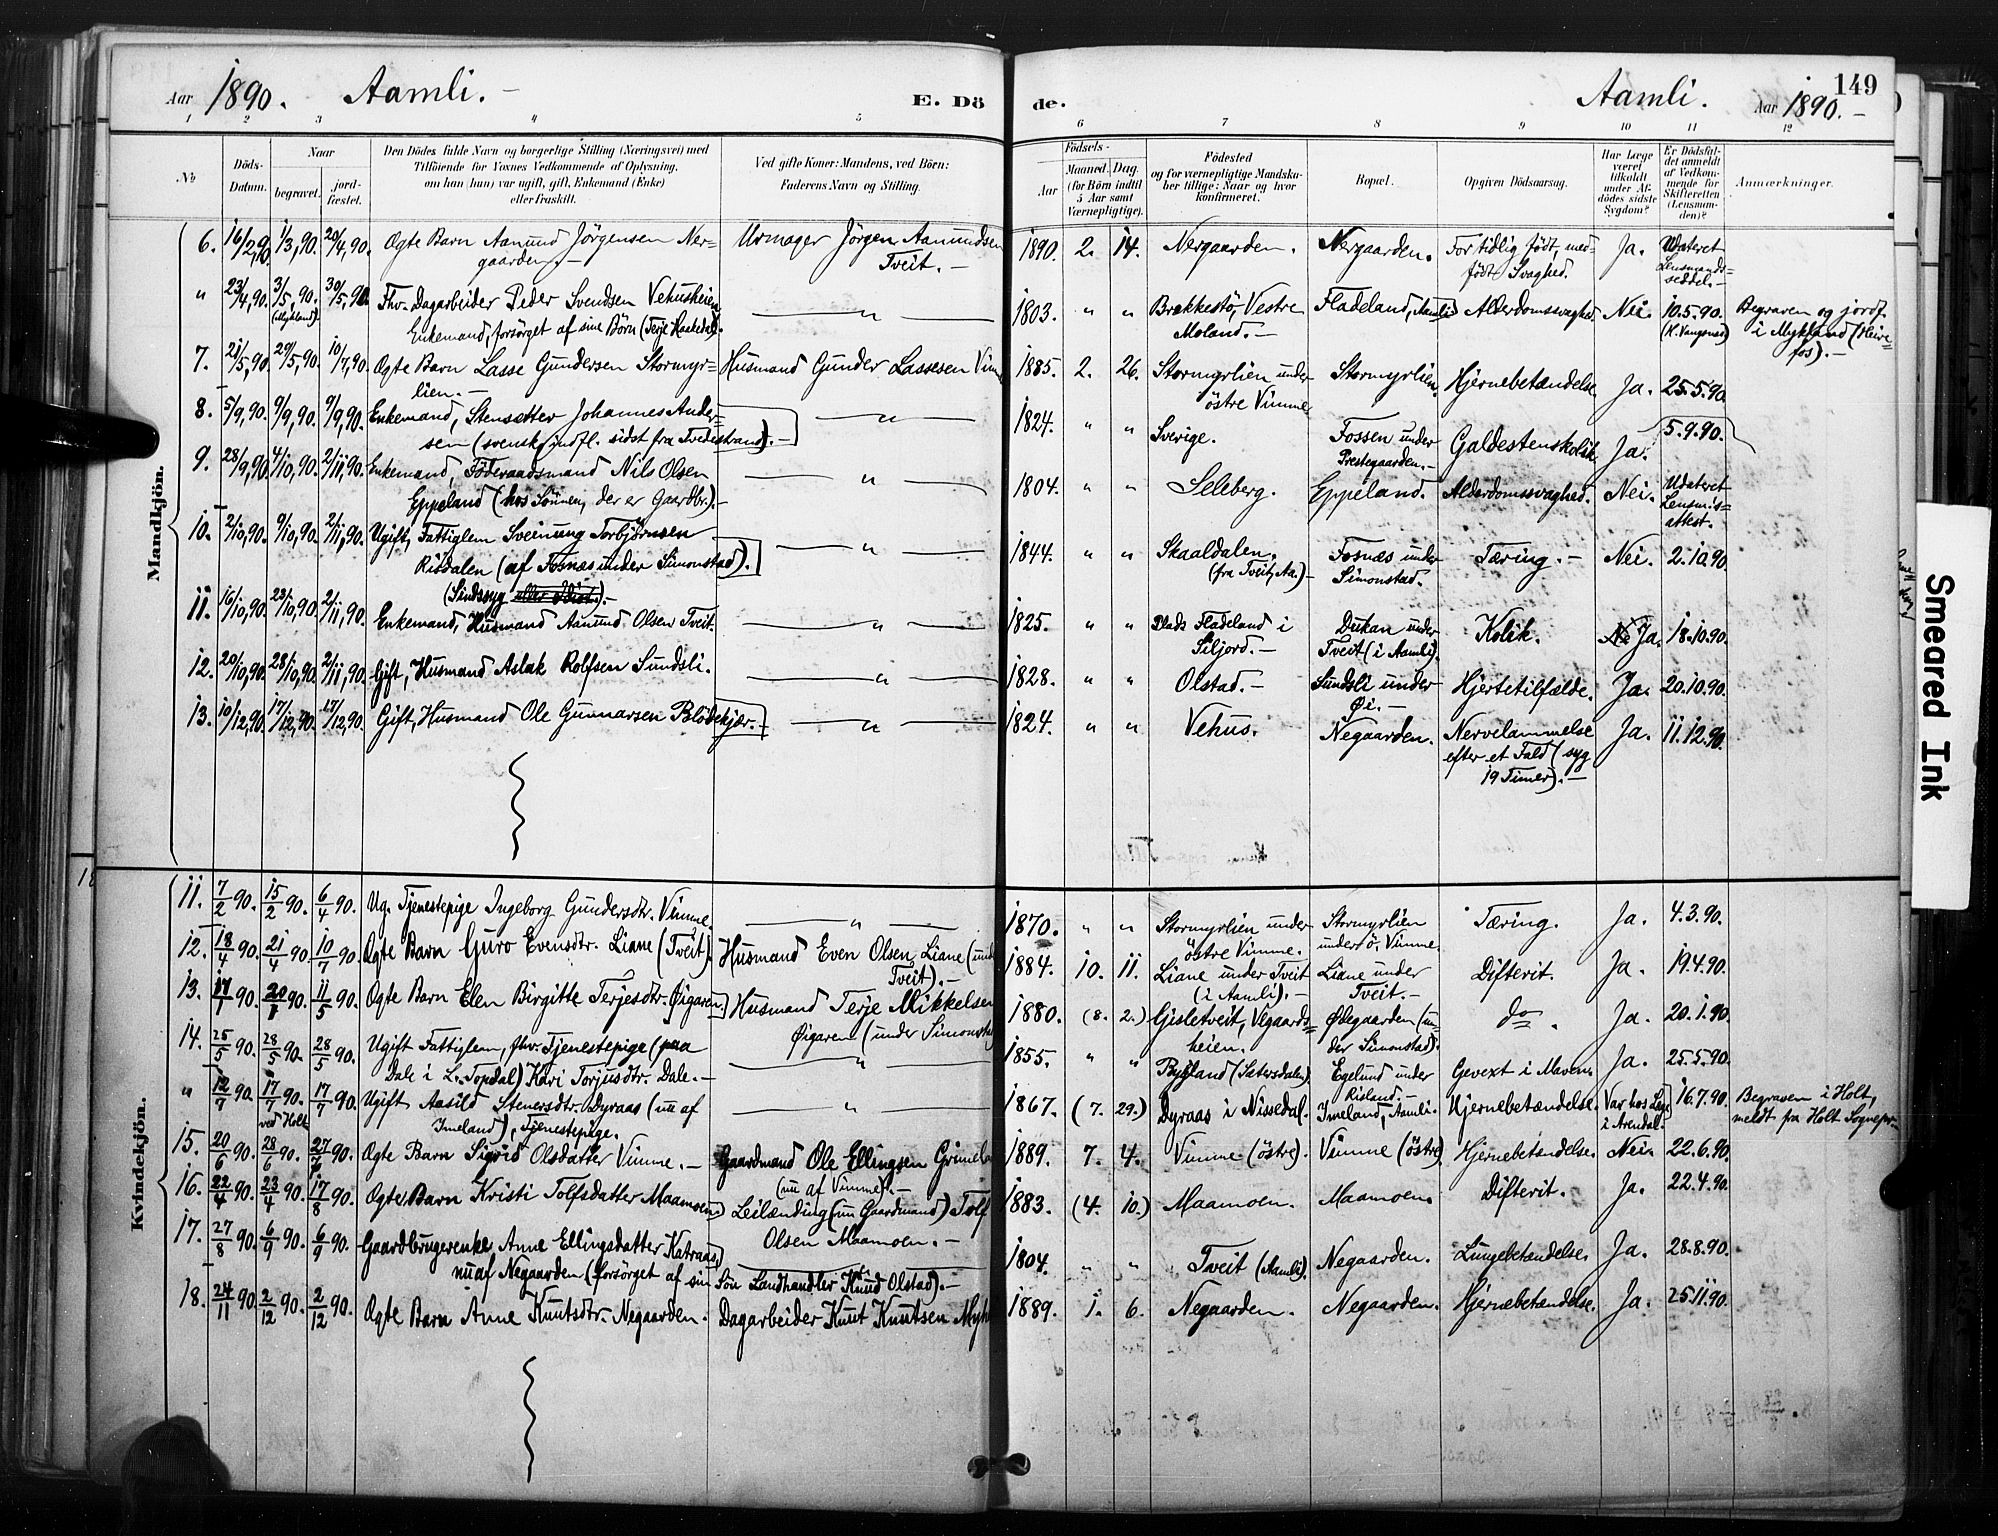 Aar 1890. Aamli. —
E. Döde.
Aamli. Aar 1890. —
149
1 2 3 4 5 6 7 8 9 10 11 12
No
Döds-Datum.
Naar
begravet.
jord-fæstet.
Den Dödes fulde Navn og borgerlige Stilling (Næringsvei) med
Tilföiende for Voxnes Vedkommende af Oplysning,
om han (hun) var ugift, gift, Enkemand (Enke)
eller fraskilt.
Ved gifte Koner: Mandens, ved Börn:
Faderens Navn og Stilling.
Födsels-
Aar
Maaned. Dag.
(for Börn indtil
5 Aar samt
Værnepligtige).
Födested
og for værnepligtige Mandsku-
ber tillige: Naar og hvor
konfirmeret.
Bopæl.
Opgiven Dödsaarsag.
Har Læge
været
tilkaldt
under Af-
dödes sidste
Sygdom?
Er Dödsfal-
det anmeldt
af Vedkom-
mende for
Skifteretten
(Lensman-
den)?
Anmærkninger.
Mandkjön.
6. 16/2,90. 1/3,90. 20/4,90. Ægte Barn Aanund Jörgensen Ner- Urmager Jörgen Aanundsen 1890. 2. 14. Nergaarden. Nergaarden. For tidlig födt, med- Ja. Udateret
gaarden. — Tveit. — födt Svaghed. Lensmands-
seddel. —
" 23/4,90. 3/5,90. 30/5,90. Fhv. Dagarbeider Peder Svendsen Vehusheien — " — 1803. " " Brækkestö, Vestre Fladeland, Aamli Alderdomssvaghed. Nei. 10.5.90. Begraven og jordf.
(Mykland) Enkemand, forsörget af sine Börn (Terje Haakedal). Moland. — i Mykland (Heire-
fos). —
7. 21/5,90. 29/5,90. 10/7,90. Ægte Barn Lasse Gundersen Stormyr- Husmand Gunder Lassesen Vimm 1885. 2. 26. Stormyrlien under Stormyrlien. Hjernebetændelse Ja. 25.5.90.
lien. — östre Vimme
8. 5/9,90. 9/9,90. 9/9,90. Enkemand, Stensætter Johannes Ander- — " — 1824. " " Sverige. Fossen under Galdestenskolik Ja. 5.9.90.
sen (svensk, indfl. sidst fra Tvedestrand). — Prestegaarden. —
9. 28/9,90. 4/10,90. 2/11,90. Enkemand, Föderaadsmand Nils Olsen — " — 1804. " " Seleberg. Eppeland. Alderdomssvaghed. Nei. Udateret
Eppeland (hos Sönnen, der er Gaardbr.). — Lensmds-
attest.
10. 2/10,90. 9/10,90. 2/11,90. Ugift, Fattiglem Sveinung Torbjörnsen — " — 1844. " " Skaaldalen. Fosnæs under Tæring. — Nei. 2.10.90.
Risdalen (af Fosnæs under Simonstad). (fra Tveit, Aa.) — Simonstad.
(Sindssyg). —
11. 16/10,90. 23/10,90. 2/11,90. Enkemand, Husmand Aanund Olsen Tveit. — " — 1825. " " Plads Fladeland i Dukan under Kolik. Ja. 18.10.90.
Siljord. — Tveit (i Aamli).
12. 20/10,90. 28/10,90. 2/11,90. Gift, Husmand Aslak Rolfsen Sundsli. — " — 1828. " " Olstad. — Sundsli under Hjertetilfælde. Ja. 20.10.90.
Öi. —
13. 10/12,90. 17/12,90. 17/12,90. Gift, Husmand Ole Gunnarsen Blödekjær. — — " — 1824. " " Vehus. Negaarden. Nervelammelse Ja. 11.12.90.
efter et Fald (syg
19 Timer). —
Kvindekjön.
11. 7/2 90. 15/2 90. 6/4 90. Ug. Tjenestepige Ingeborg Gundersdtr. Vimme. — " — 1870. " " Stormyrlien under Stormyrlien Tæring. Ja. 4.3.90.
östre Vimme. under ö. Vimme.
12. 18/4 90. 21/4 90. 10/7 90. Ægte Barn Guro Evensdtr. Liane (Tveit). Husmand Even Olsen Liane (und 1884. 10. 11. Liane under Tveit Liane under Difterit. Ja. 19.4.90.
Tveit). — (i Aamli). — Tveit. —
13. 17/1 90. 20/1 90. 11/5 90. Ægte Barn Elen Birgitte Terjesdtr. Öigaren. Husmand Terje Mikkelsen 1880. (8. 2.) Gisletveit, Vegaards- Ödegaarden (un- do. Ja. 20.1.90.
Öigaren (under Simonsta heien. der Simonstad).
14. 25/5 90. 28/5 90. 28/5 90. Ugift Fattiglem, fhv. Tjenestepige (paa — " — 1855. " " Bygland (Sætersdalen). Egelund under Gevext i Maven. Ja. 25.5.90.
Dale i L. Topdal) Kari Torjusdtr. Dale. — Risland. —
" 12/7 90. 17/7 90. 17/7 90. Ugift Aasild Stenersdtr. Dyraas (nu af — " — 1867. (7. 29.) Dyraas i Nissedal. Imeland, Aamli. Hjernebetændelse. Var hos Læge 16.7.90. Begraven i Holt,
ved Holt Imeland), Tjenestepige. i Arendal. meldt fra Holt Sognepr. —
15. 20/6 90. 28/6 90. 27/7 90. Ægte Barn Sigrid Olsdatter Vimme. — Gaardmand Ole Ellingsen Grimela 1889. 7. 4. Vimme (östre). Vimme (östre) Hjernebetændelse. Nei. 22.6.90.
(nu af Vimme). —
16. 22/4 90. 23/4 90. 17/8 90. Ægte Barn Kristi Tolfsdatter Maamoen. Leilænding (nu Gaardmand) Tolf 1883. (4. 10.) Maamoen. Maamoen. Difterit. Ja. 22.4.90.
Olsen Maamoen. —
17. 27/8 90. 6/9 90. 6/9 90. Gaardbrugerenke Anne Ellingsdatter Katraas, 1804. " " Tveit (Aamli). Negaarden. Lungebetændelse. Ja. 28.8.90.
nu af Negaarden (forsörget af sin Sön Landhandler Knud Olstad). —
18. 24/11 90. 2/12 90. 2/12 90. Ægte Barn Anne Knutsdtr. Negaarden. Dagarbeider Knut Knutsen Myk 1889. 1. 6. Negaarden. Negaarden. Hjernebetændelse. Ja. 25.11.90.
Smeared Ink